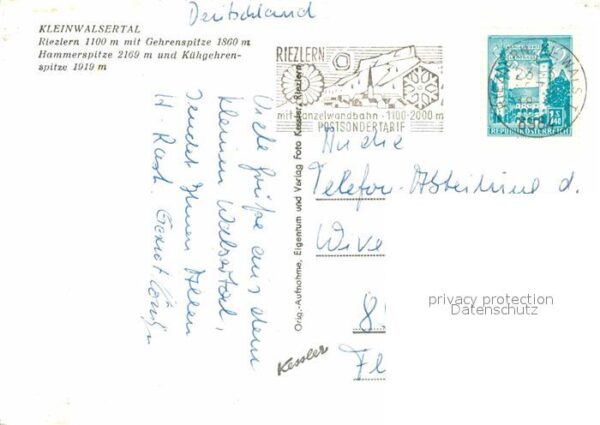 Deutschland
KLEINWALSERTAL
Riezlern 1100 m mit Gehrenspitze 1860 m
Hammerspitze 2169 m und Kühgehren-
spitze 1919 m
RIEZLERN
mit Kanzelwandbahn · 1100-2000 m
POSTSONDERTARIF
REPUBLIK ÖSTERREICH
An die
Telefon-Abteilung d.
Viele Grüße aus dem
Kleinen Walsertal,
sendet Ihnen Allen
Orig.-Aufnahme, Eigentum und Verlag Foto Kessler, Riezlern
Kessler
privacy protection
Datenschutz